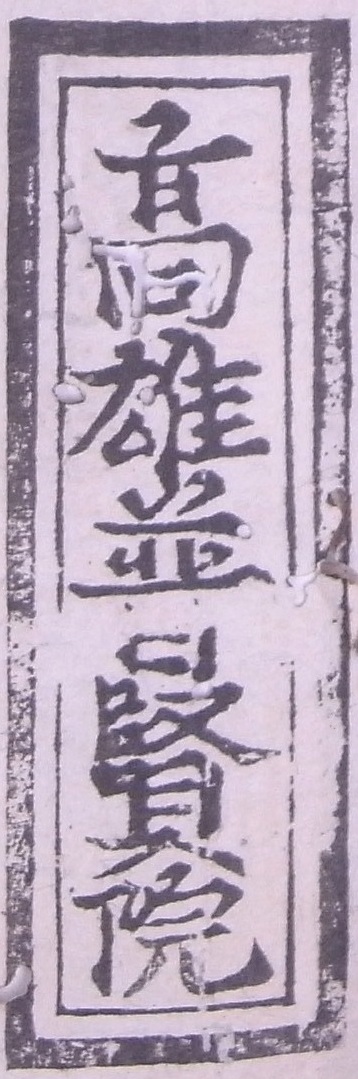 高雄普賢院